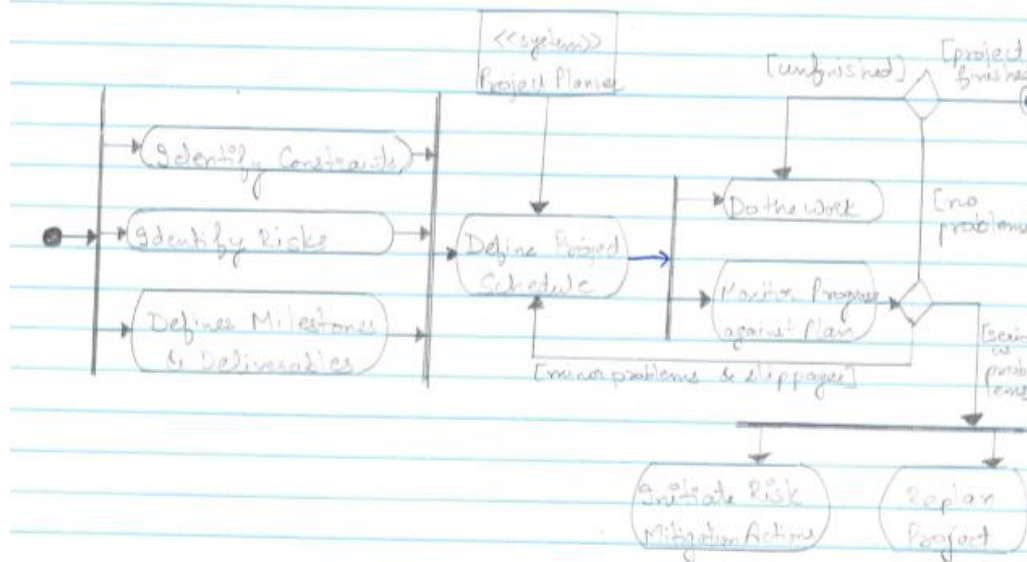 <<system>>
Project Planner
[unfinished]
[project
finished
Identify Constraints
Identify Risks
Defines Milestones
& Deliverables
Define Project
Schedule
Do the Work
[no
problems
Monitor Progress
against Plan
[minor problems & slippages]
[serio
us
prob
lems
Initiate Risk
Mitigation Actions
Replan
Project